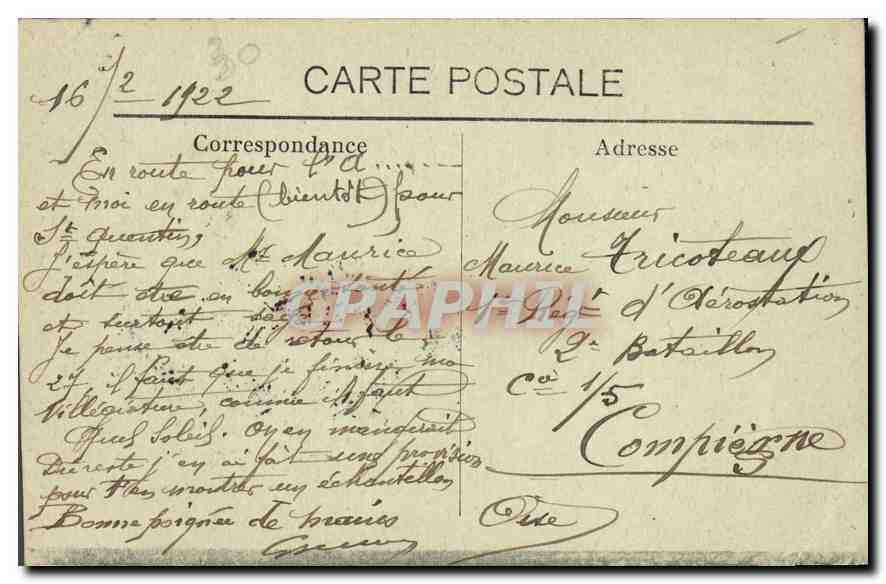 16/2 1922
30
CARTE POSTALE
Correspondance
Adresse
En route pour l'A......
et moi en route (bientôt) pour
St Quentin,
J'espère que Mr Maurice
doit être en bonne santé
et surtout sage
Je pense être de retour le
27, il faut que je finisse ma
Villégiature, comme il faut
Quel Soleil. On en mangerait
Du reste j'en ai fait une provision
pour t'en montrer un échantillon
Bonne poignée de mains
Monsieur
Maurice Tricoteaux
1er Régt d'Aérostation
2e Bataillon
Cie 1/5
Compiègne
Oise
CPAPHIL